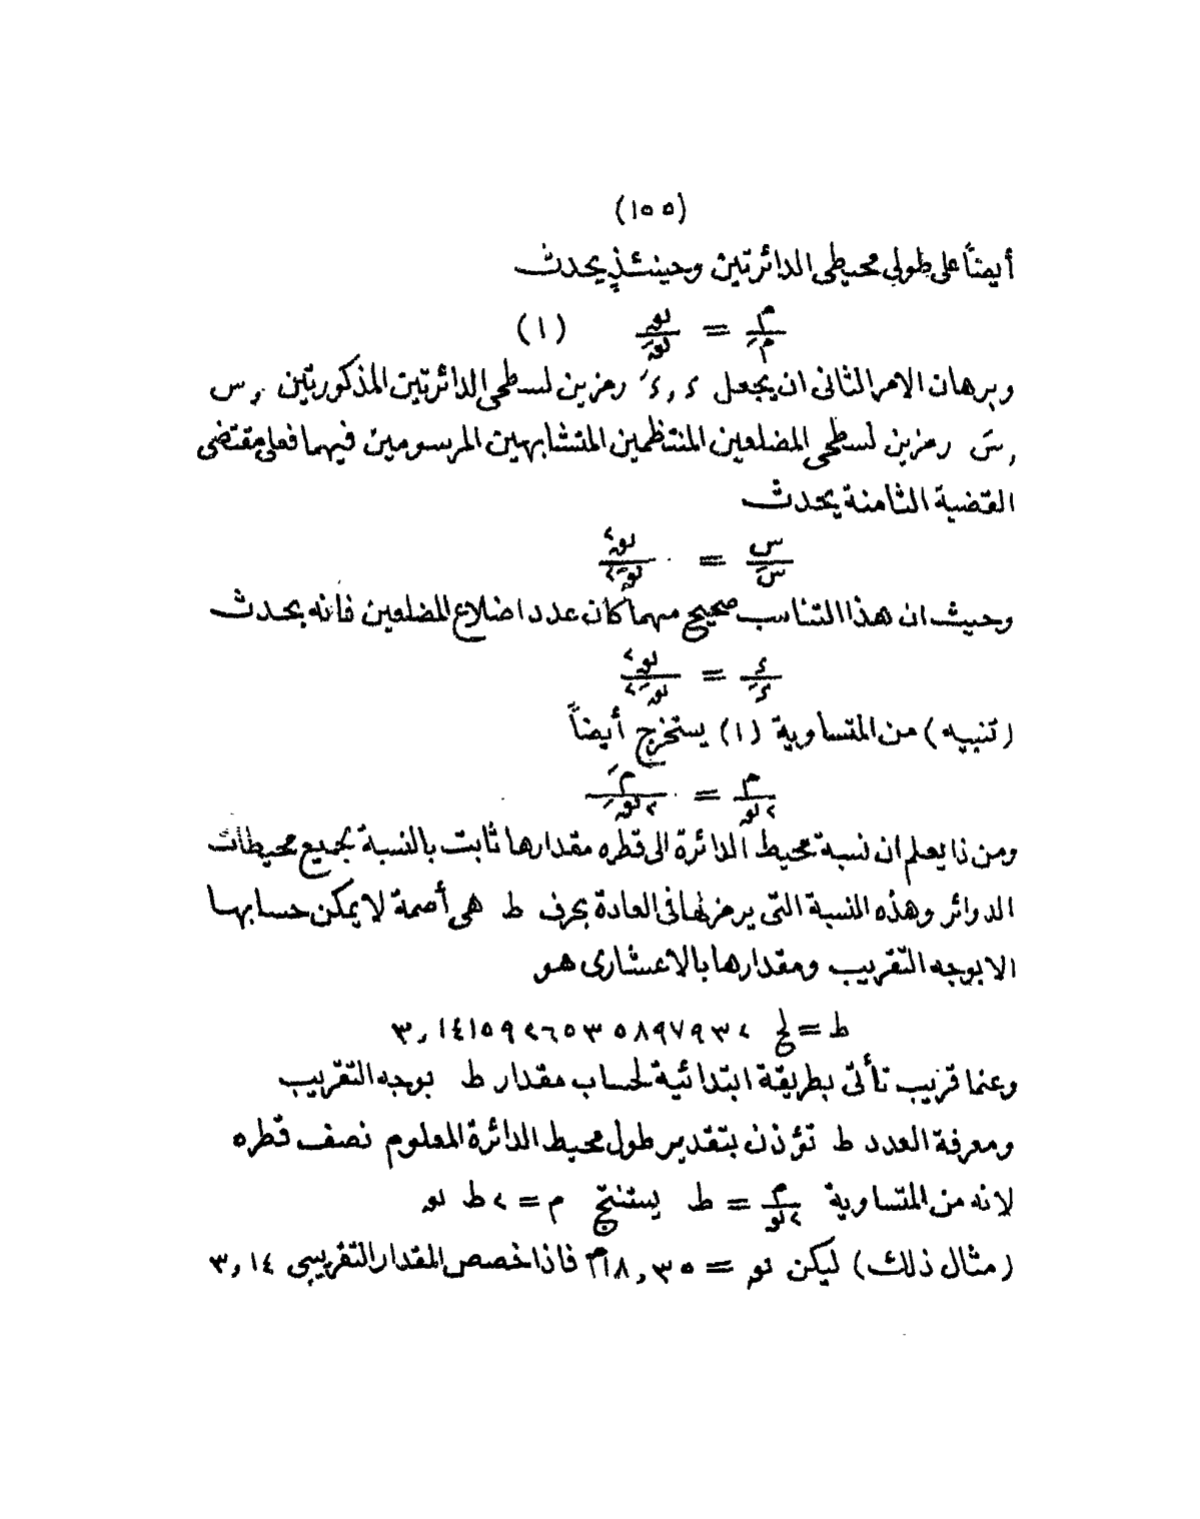 (١٥٥)
أيضاً على طولي محيطي الدائرتين وحينئذٍ يحدث
م/مَ = نو/نوَ (١)
وبرهان الامر الثانى ان يجعل ء , ءَ رمزين لسطحى الدائرتين المذكوريتين , س
, سَ رمزين لسطحى المضلعين المنتظمين المتشابهين المرسومين فيهما فعلى مقتضى
القضية الثامنة يحدث
س/سَ = نو٢/نوَ٢
وحيث ان هذا التناسب صحيح مهما كان عدد اضلاع المضلعين فانه يحدث
ء/ءَ = نو٢/نوَ٢
(تنبيه) من المتساوية (١) يستخرج أيضاً
م/٢نو = مَ/٢نوَ
ومن ذا يعلم ان نسبة محيط الدائرة الى قطره مقدارها ثابت بالنسبة لجميع محيطات
الدوائر وهذه النسبة التى يرمز لها فى العادة بحرف ط هى أصمة لا يمكن حسابها
الا بوجه التقريب ومقدارها بالاعشارى هو
ط = ٣,١٤١٥٩٢٦٥٣٥٨٩٧٩٣٢
وعنما قريب تأتى بطريقة ابتدائية لحساب مقدار ط بوجه التقريب
ومعرفة العدد ط تؤذن بتقدير طول محيط الدائرة المعلوم نصف قطره
لانه من المتساوية م/٢نو = ط يستنتج م = ٢ ط نو
(مثال ذلك) ليكن نو = ١٨,٣٥م فاذا خصص المقدار التقريبى ٣,١٤